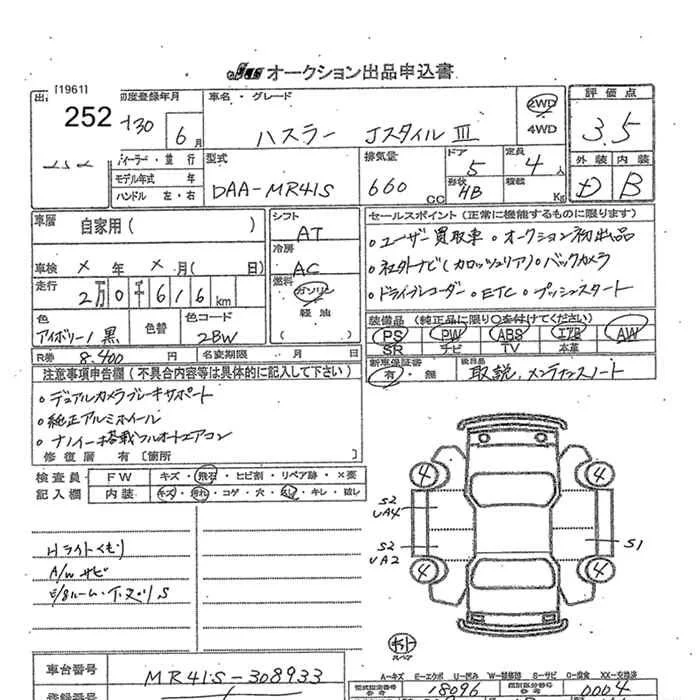 オークション出品申込書
[1961]
252
初度登録年月
車名・グレード
2WD
評価点
H30 6月
ハスラー JスタイルⅢ
4WD
3.5
ディーラー・並行
型式
排気量
ドア
定員
外装 内装
モデル年式 年
DAA-MR41S
660 CC
5
4人
D B
ハンドル 左・右
形状
HB
積載
Kg
車歴
自家用( )
シフト
AT
セールスポイント(正常に機能するものに限ります)
冷房
AC
○ユーザー買取車 ○オークション初出品
車検 × 年 × 月( 日)
○社外ナビ(カロッツェリア)○バックカメラ
走行
2万0千616km
燃料
ガソリン
軽油
( )
○ドライブレコーダー ○ETC ○プッシュスタート
色
アイボリー/黒
色替
色コード
2BW
装備品(純正品に限り○を付けてください)
PS PW ABS エアB AW
SR ナビ TV 本革
R券 8,400 円
名変期限 月 日
新車保証書
有・無
後日品
取説、メンテナンスノート
注意事項申告欄(不具合内容等は具体的に記入して下さい)
○デュアルカメラブレーキサポート
○純正アルミホイール
○ナノイー搭載フルオートエアコン
修復歴 有〔箇所 〕
検査員
記入欄
FW
キズ・飛石・ヒビ割・リペア跡・×要
内装
キズ・汚れ・コゲ・穴・・キレ・破レ
Hライトくもり
A/Wサビ
S2
UA4
S2
UA2
S1
4
4
4
4
車台番号
MR41S-308933
A-キズ E-エクボ U-凹み W-補修 S-サビ C-腐食 XX-交換済
型式指定番号
18096
類別区分番号